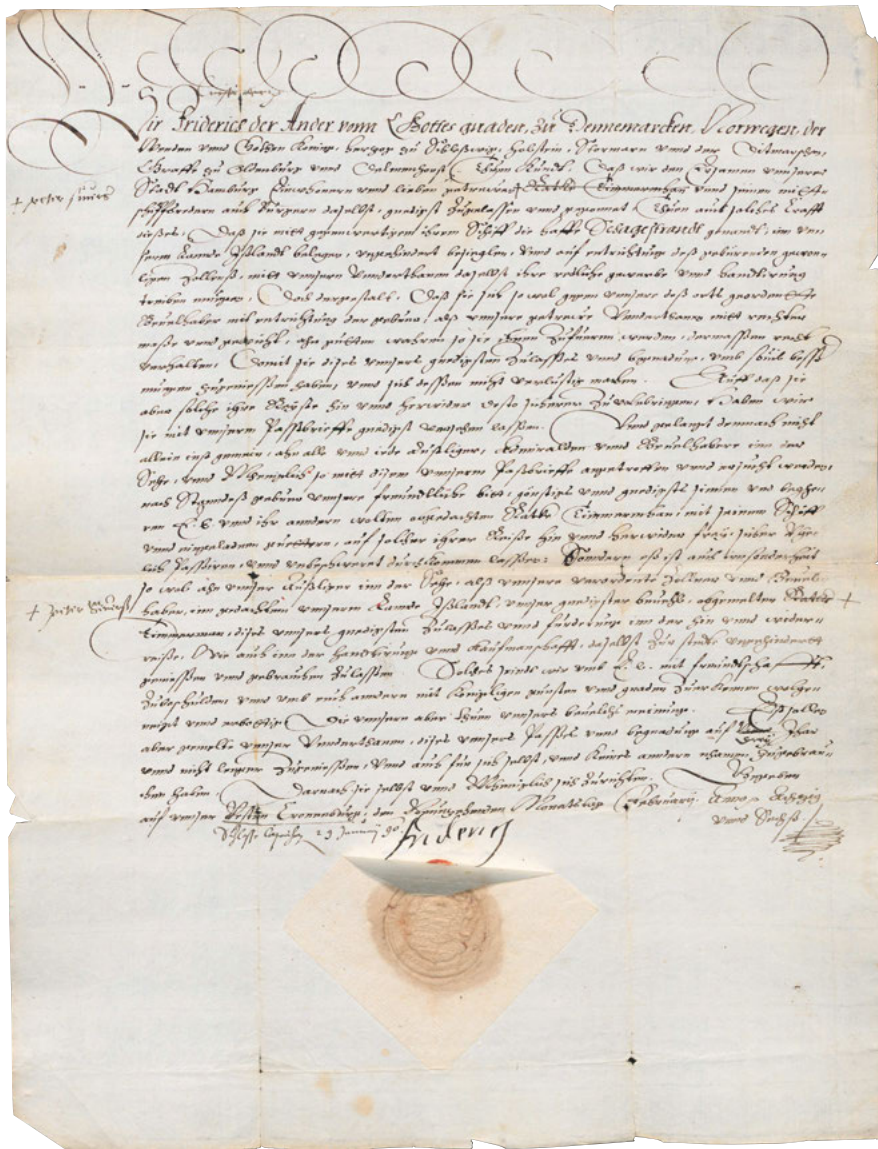 Christi dei
Wir Friderich der Ander vonn Gottes gnaden, zu Dennemarcken, Norwegen, der
Wenden vnnd Gothen König, Herzog zu Schleßwig, Holstein, Stormarn vnnd der Ditmarschen,
Graffe zu Oldenburg vnnd Delmenhorst, Thun kundt, Daß wir den Ersamen vnserer
Stadt Hamburg Einwohnern vnnd lieben getrewen Ratke Timmerman vnnd seinen mitt
+ peter siuers
schiffsredern auch Bürgern daselbst, gnedigst zugelassen vnnd gegönnet, Thuen auch solches krafft
dießes, Daß sie mitt gegenwertigem ihrem Schiff die haffe Schagestrandt genandt, im vn-
serm Lande Ißlandt belegen, vngehindert besieglen, vnnd auf entrichtung deß gebürenden gewon-
lichen Zollenß, mitt vnsern Vnderthanen daselbst ihre redliche gewerbe vnnd handtirung
treiben mugen, Doch dergestalt, Daß sie sich so wol gegen vnsere deß orts geordente
Beuelhaber mit entrichtung der gebüer, alß vnsere getrewe Vnderthanen mitt rechter
maße vnnd gewicht, ahn guttem wahren so sie ihnen zufueren werden, dermassen recht
verhalten, Damit sie dises vnsers gnedigsten Zulasses vnnd begnadung, vmb souil besser
mugen zugeniessen haben, vnnd sich dessen nicht verlustig machen. Auff daß sie
aber solche ihre Reyße hin vnnd herwider desto sicherer zuvolnbringen, Haben wir
sie mit vnserem Paßbrieffe gnedigst versehen lassen. Vnnd gelangt demnach nicht
allein inß gemein, ahn alle vnnd iede Außligger, Admiralden vnnd Beuelhabere inn der
Sehe, vnnd Menniglich so mitt disem vnserem Paßbrieffe angetroffen vnnd ersucht werden,
nach Standeß gebüer vnsere freundtliche bitt, günstigs vnnd gnedigsts sinnen vnd begeh-
ren E. L. vnnd ihr andern wollen obgedachten Ratke Timmerman, mit seinem Schiff
vnnd eingeladenen guettern, auf solcher ihrer Reiße hin vnnd herwider frey, sicher
vnnd vnbeschweret durchkommen lassen. Sondern eß ist auch insonderheit
so wol ahn vnser Außligger inn der Sehe, alß vnsere verordente Zollner vnnd Beuel-
haber, im gedachten vnserem Lande Ißlandt, vnser gnedigster beuehl, obgemelten Ratke +
+ peter siuerst
Timmerman, dises vnsers gnedigsten Zulasses vnnd förderung inn der hin vnnd wider
reiße, Wie auch inn der handtirung vnnd Kaufmanschafft, daselbst zur stede vngehindert
geniessen vnnd gebrauchen zulassen. Solchs seindt wir vmb E. L. mit freundtschafft,
zubeschulden, vnnd vmb euch andern mit Königlichen gunsten vnnd gnaden zuerkennen wolge-
neigt vnnd erbottig, Die vnsern aber thuen vnsers beuelchs meinunge. Eß sollen
aber gemelte vnser Vnderthanen, dises vnsers Passes vnnd begnadung auf drey Jhar
vnnd nicht lenger zugeniessen, Vnnd auch für sich selbst, vnnd keines andern nhamen zugebrau-
chen haben. Darnach sie selbst vnnd Menniglich sich zurichten. Gegeben
auf vnser Vestten Cronenburg, den Monatstag February. Anno Achtzig
vnnd Sechß.
29 January 90.
Friderich